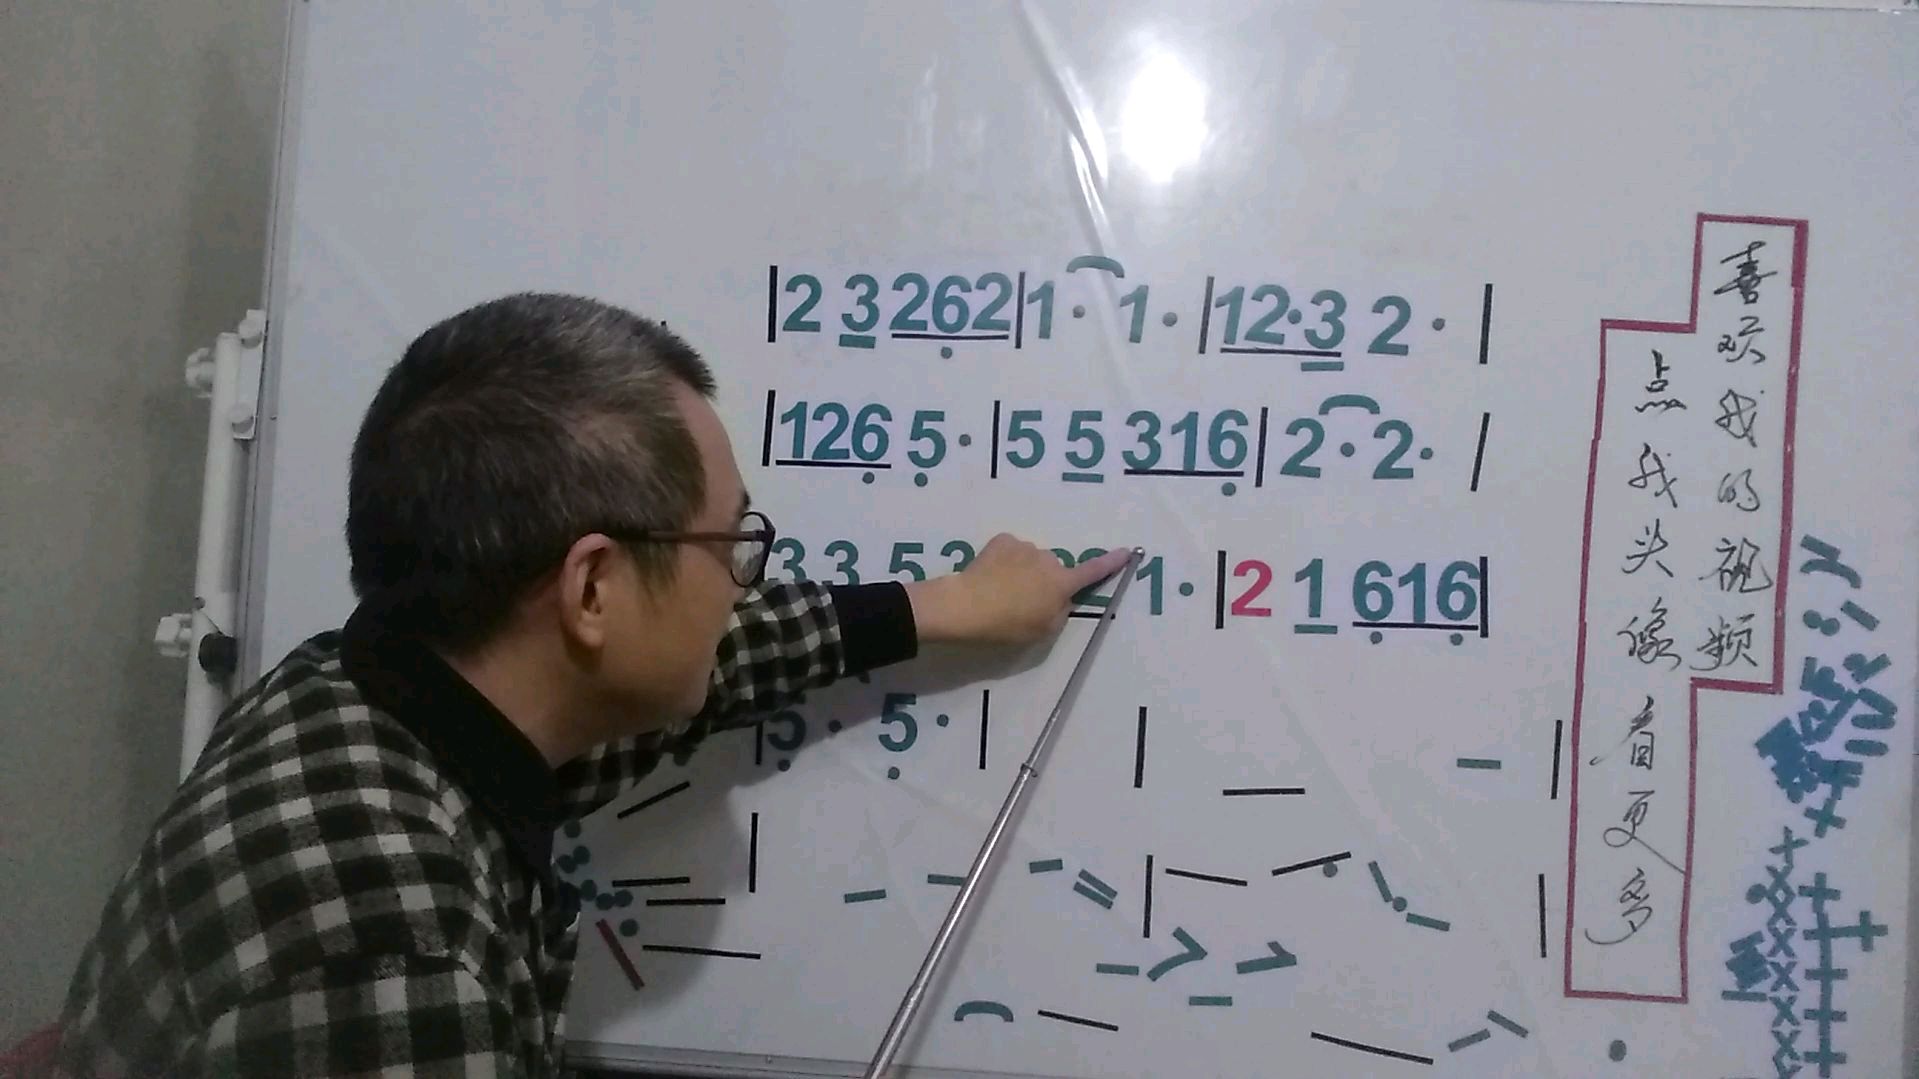 |2 3 262|1· 1·|12·3 2·|
|126 5·|5 5 316|2· 2·|
3 3 5 3 2 1·|2 1 616|
|5· 5·|
喜欢我的视频
点我头像看更多